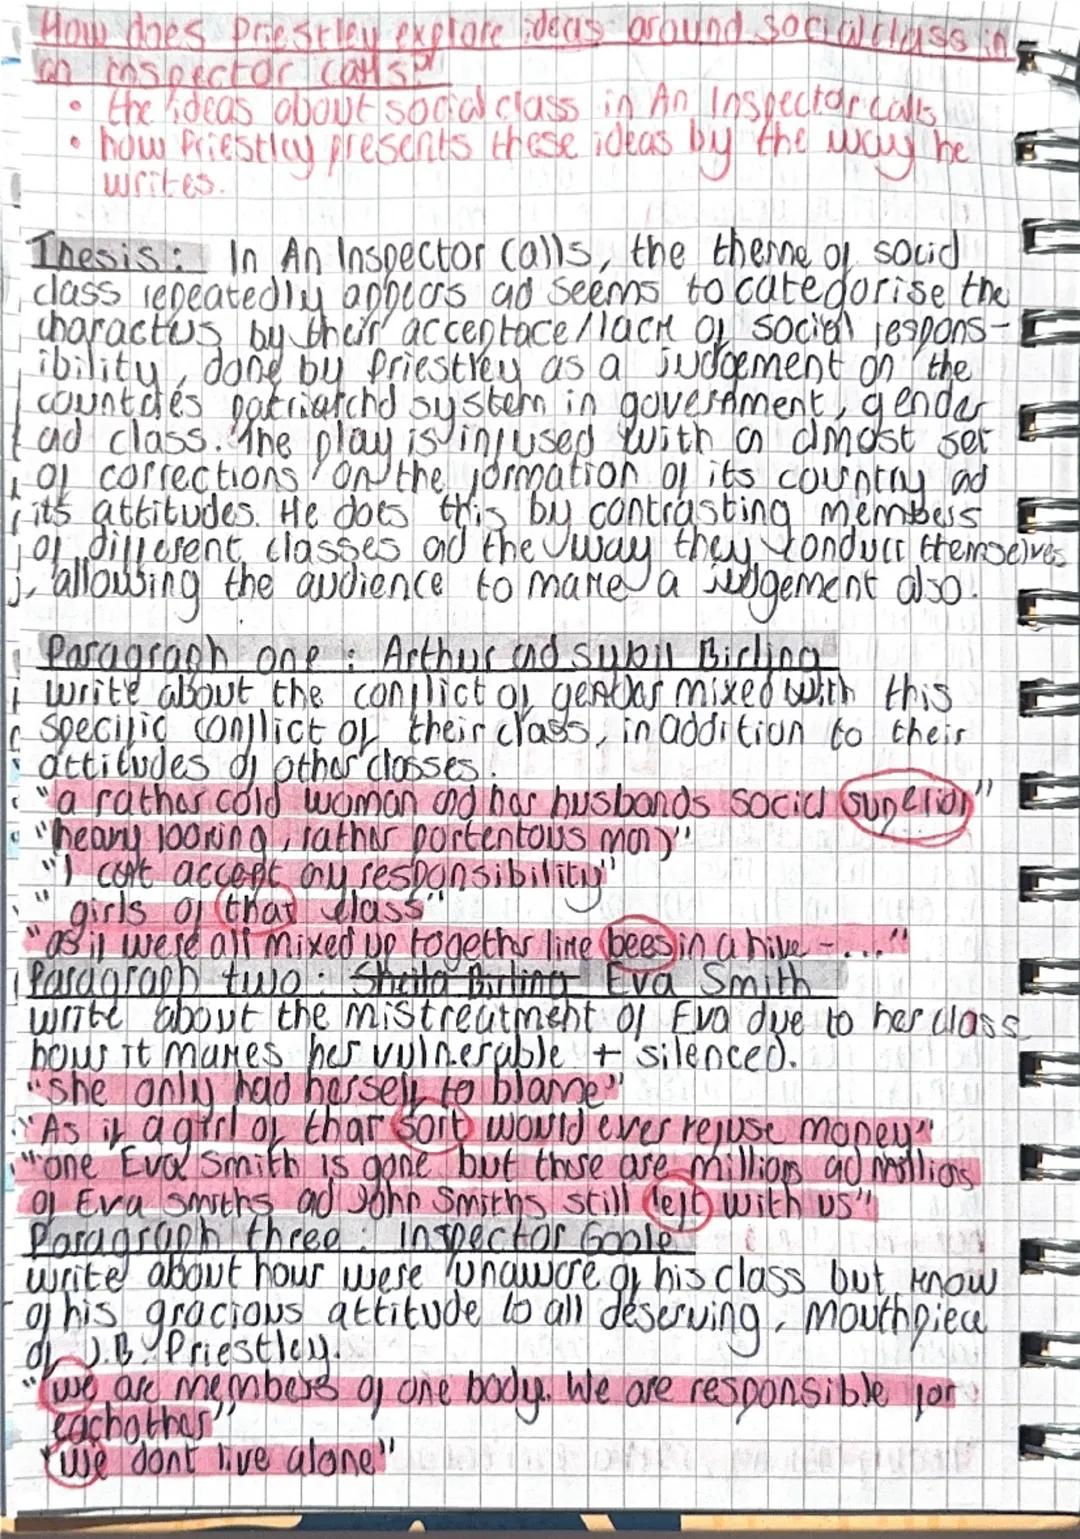 How does Priestley explore ideas around social class in
an inspector calls?
• the ideas about social class in An Inspector calls
• how Priestley presents these ideas by the way he
writes.
Thesis: In An Inspector Calls, the theme of social
class repeatedly appears ad seems to categorise the
characters by their acceptace/lack of social respons-
ibility, done by Priestley as a judgement on the
countries patriarchal system in government, gender
ad class. The play is infused with a almost set
of corrections on the formation of its country ad
its attitudes. He does this by contrasting members
of different classes ad the way they conduct themselves
, allowing the audience to make a judgement also.
Paragraph one: Arthur and Sybil Birling
write about the conflict of genders mixed with this
specific conflict of their class, in addition to their
attitudes of other classes.
"a rather cold woman and her husbands social superior"
"heavy looking, rather portentous man"
"I cant accept any responsibility"
"girls of that class"
"as if were all mixed up together like bees in a hive - ..."
Paragraph two: Sheila Birling Eva Smith
write about the mistreatment of Eva due to her class
how it makes her vulnerable + silenced.
"she only had herself to blame"
"As if a girl of that sort would ever refuse money"
"one Eva Smith is gone but there are millions ad millions
of Eva smiths ad John Smiths still left with us"
Paragraph three: Inspector Goole
write about how were unaware of his class but know
of his gracious attitude to all deserving, mouthpiece
of J.B. Priestley.
"we are members of one body. We are responsible for
eachother"
"We dont live alone"